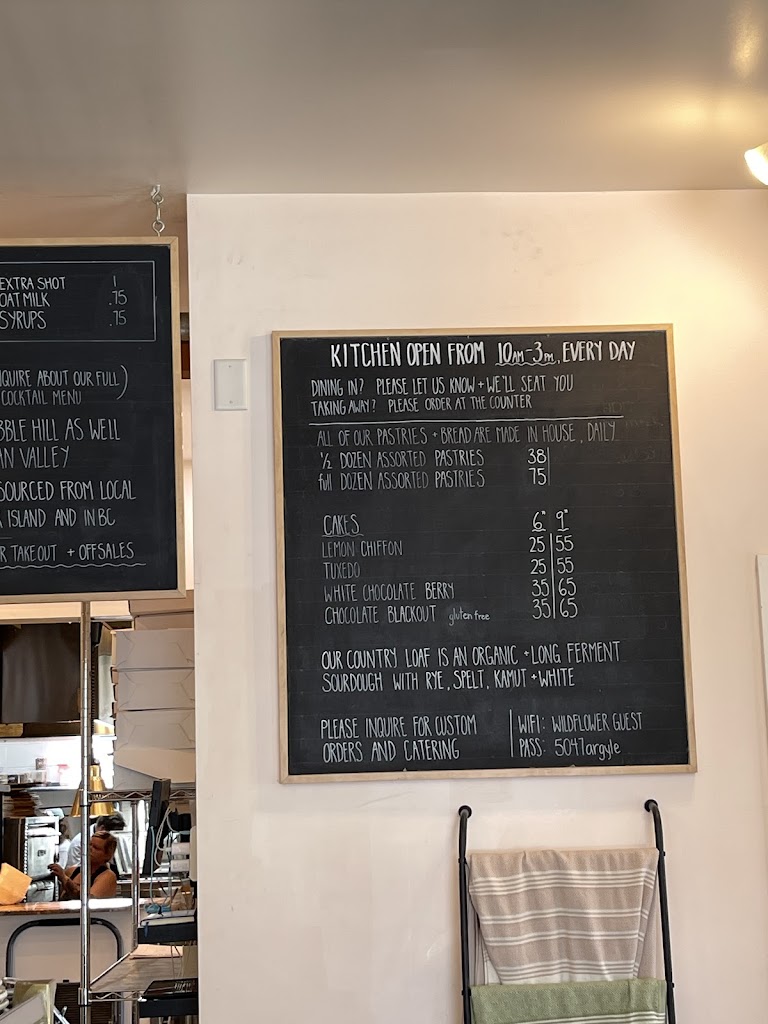 EXTRA SHOT 1
OAT MILK .75
SYRUPS .75
QUIRE ABOUT OUR FULL)
COCKTAIL MENU
BBLE HILL AS WELL
AN VALLEY
SOURCED FROM LOCAL
ISLAND AND IN BC
R TAKEOUT + OFFSALES
KITCHEN OPEN FROM 10AM-3PM, EVERY DAY
DINING IN? PLEASE LET US KNOW + WE'LL SEAT YOU
TAKING AWAY? PLEASE ORDER AT THE COUNTER
ALL OF OUR PASTRIES + BREAD ARE MADE IN HOUSE, DAILY
1/2 DOZEN ASSORTED PASTRIES 38
full DOZEN ASSORTED PASTRIES 75
CAKES 6" 9"
LEMON CHIFFON 25 55
TUXEDO 25 55
WHITE CHOCOLATE BERRY 35 65
CHOCOLATE BLACKOUT gluten free 35 65
OUR COUNTRY LOAF IS AN ORGANIC + LONG FERMENT
SOURDOUGH WITH RYE, SPELT, KAMUT + WHITE
PLEASE INQUIRE FOR CUSTOM
ORDERS AND CATERING
WIFI: WILDFLOWER GUEST
PASS: 5047argyle